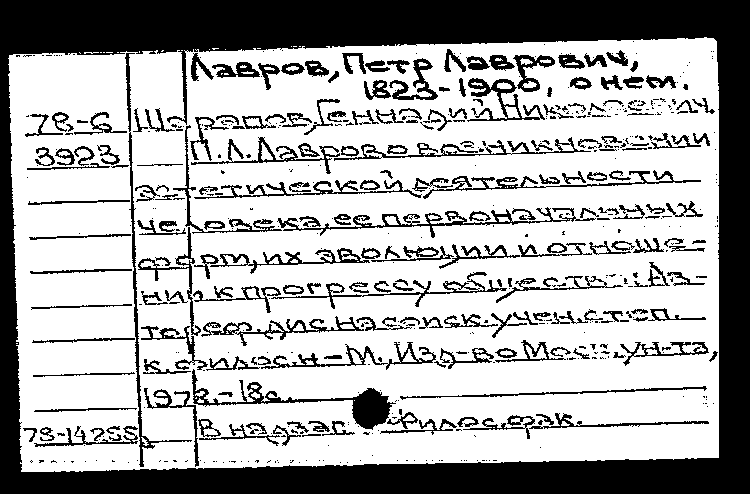 Лавров, Петр Лаврович,
1823-1900, о нем.
78-6 Шарапов, Геннадий Николаевич.
3923 П.Л.Лавров о возникновении
эстетической деятельности
человека, ее первоначальных
форм, их эволюции и отноше-
нии к прогрессу общества: Ав-
тореф. дис. на соиск. учен. степ.
к. филос. н - М., Изд-во Моск. ун-та,
1978. - 18с.
78-14255 В надзаг Филос. фак.